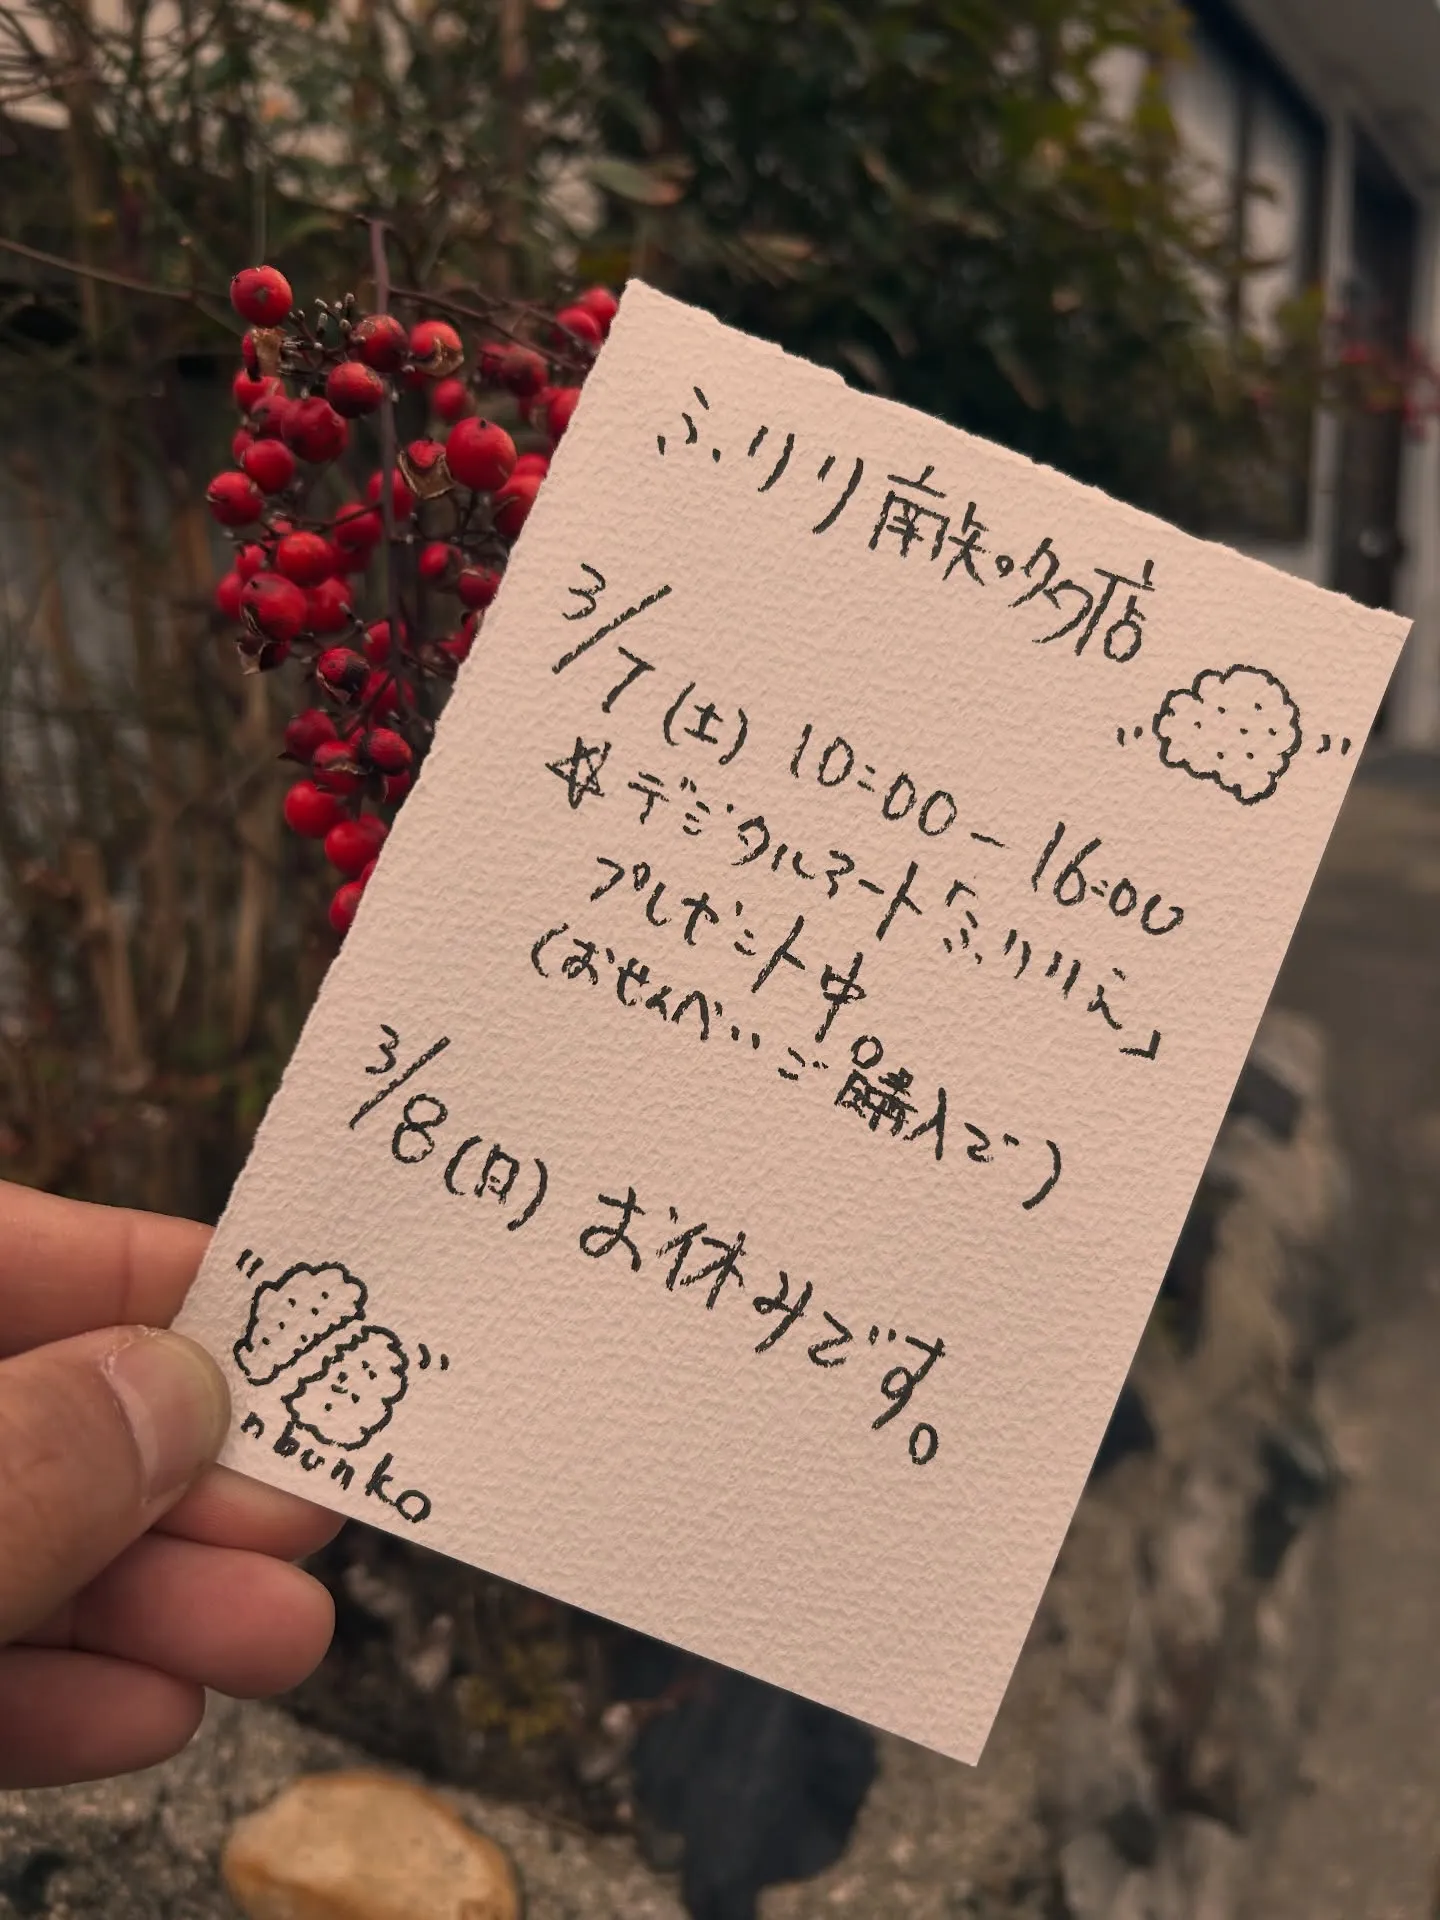 ふりり南知多店
3/7(土) 10:00-16:00
☆デジタルアート「ふりりえ」
プレゼント中。
(おせんべいご購入で)
3/8(日)お休みです。
nbunko